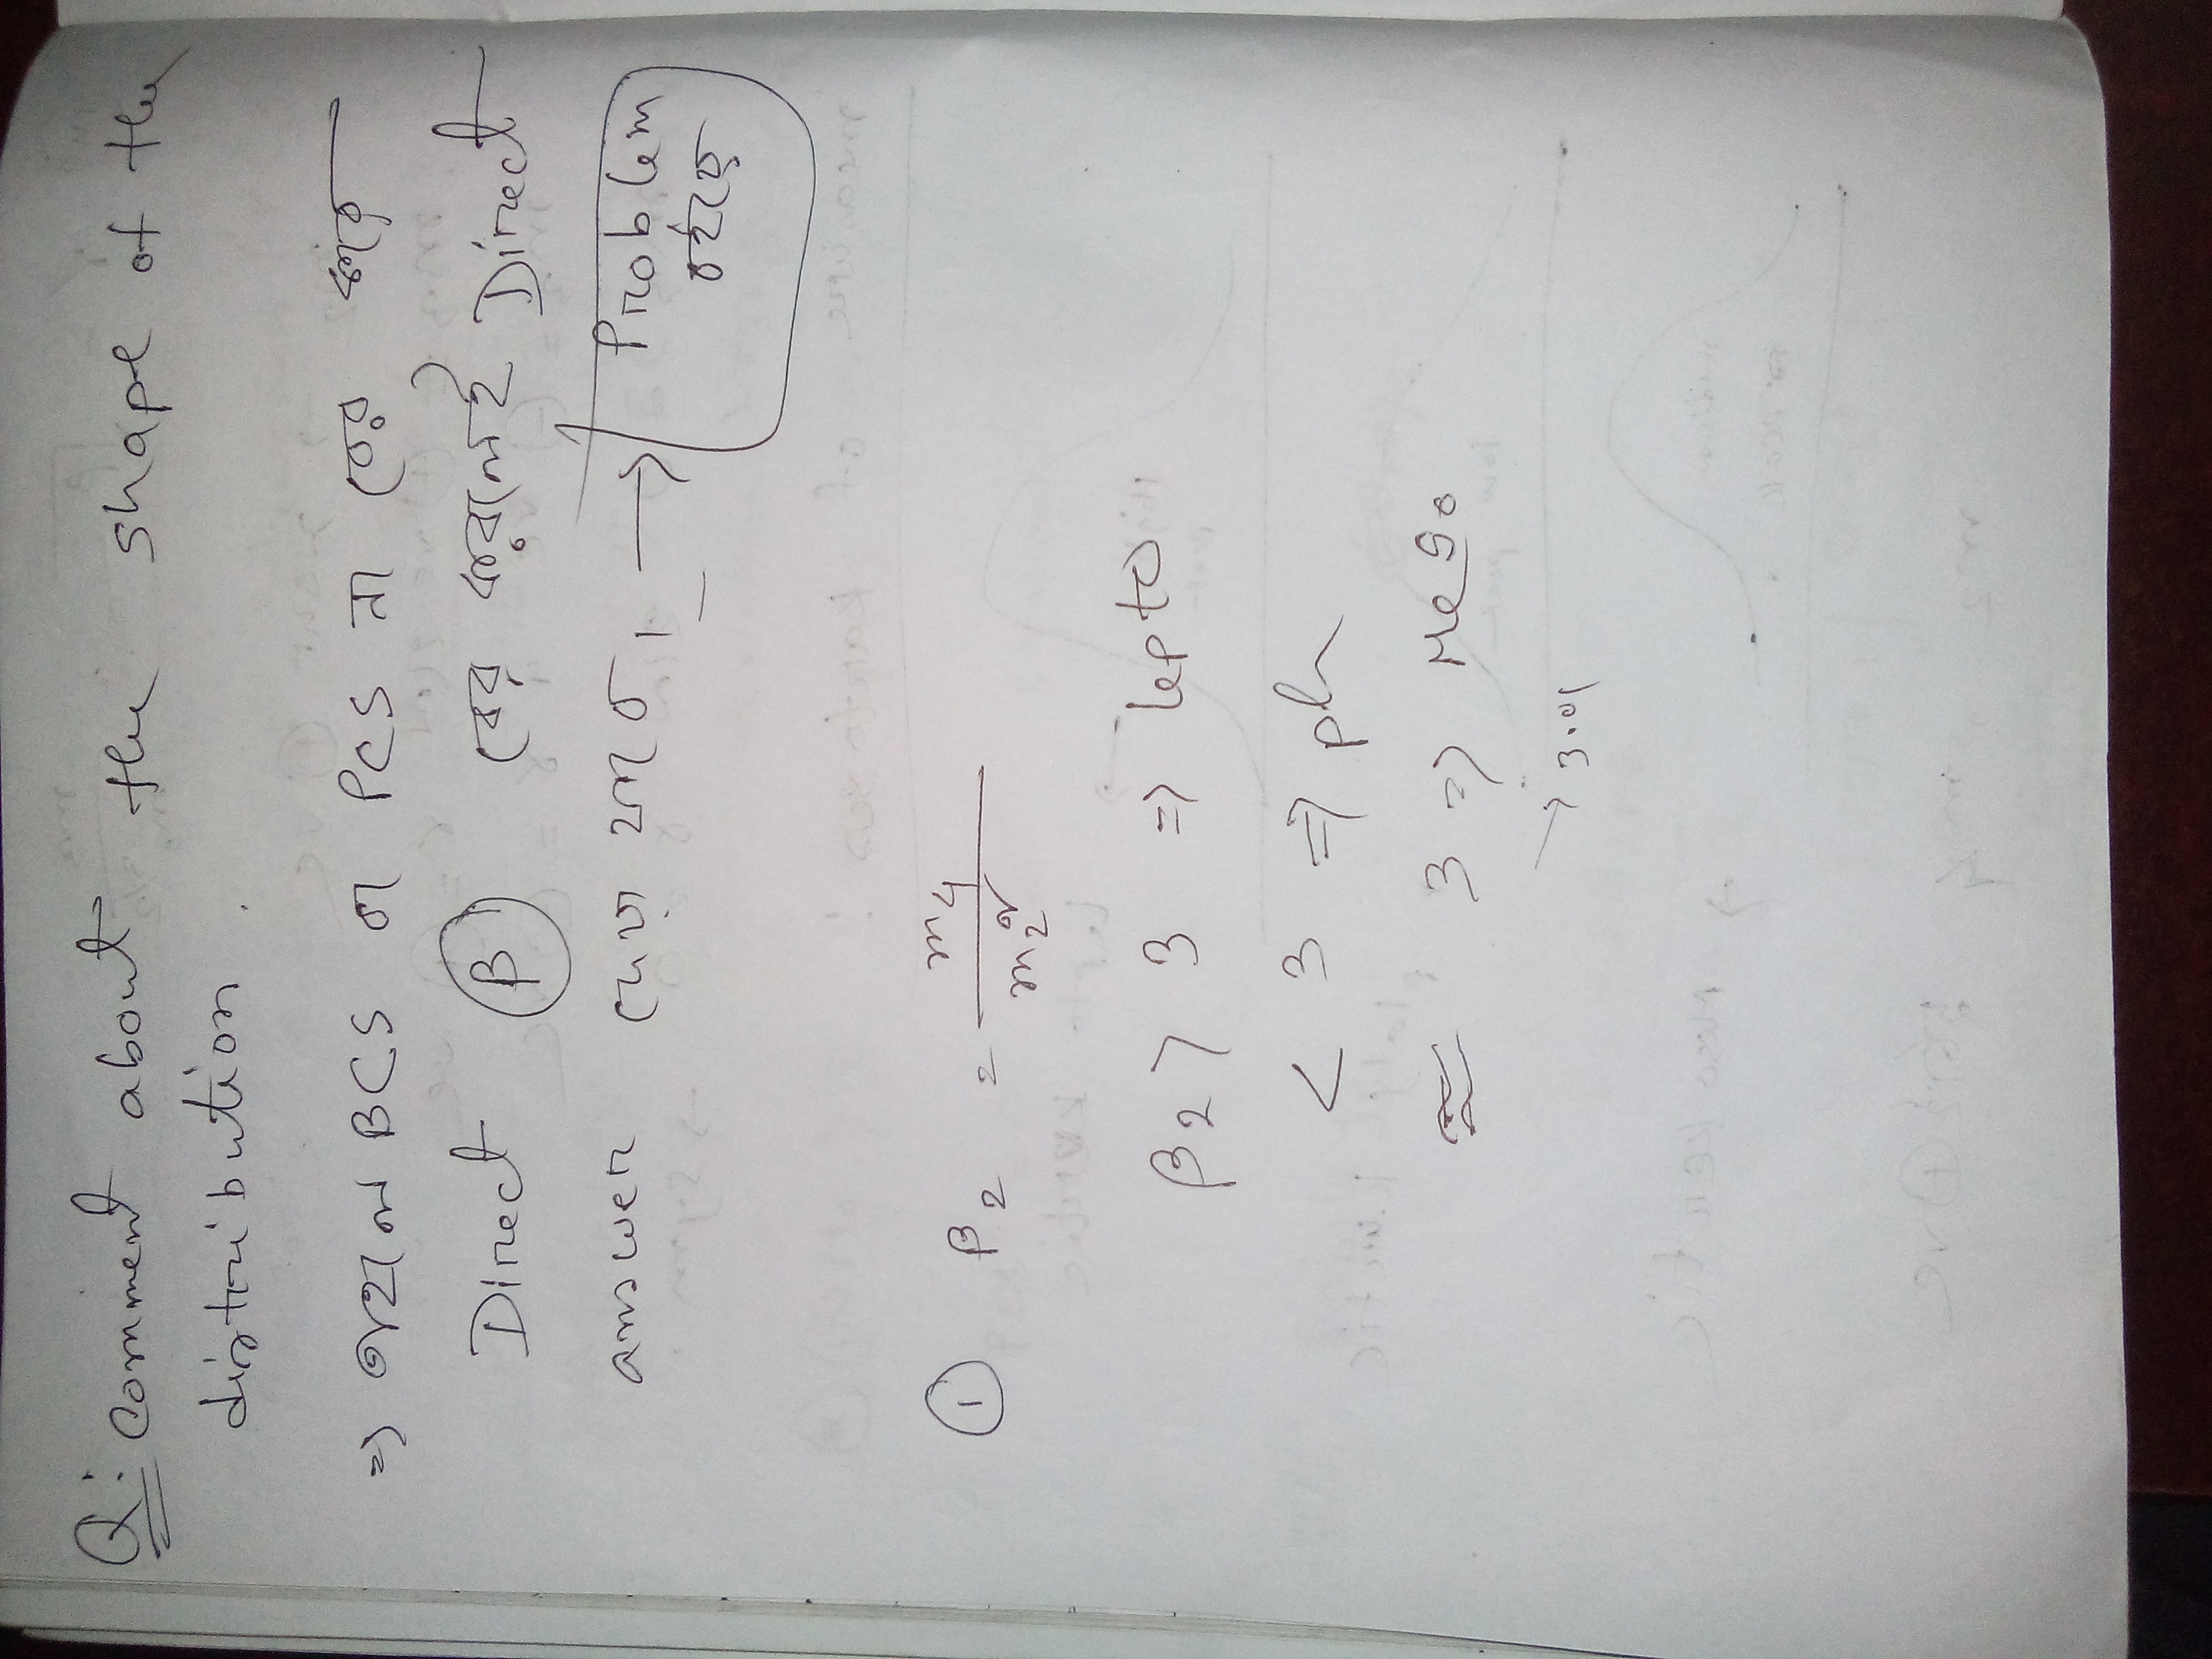 Q: Comment about the shape of the
distribution.
=> এখান BCS বা PCS না বের করে
Direct β বের করলেই Direct
answer পেয়ে যাব। → Problem
বইয়ে
① β2 = m4 / m2²
β2 > 3 => Lepto
< 3 => pla
≈ 3 => Meso
→ 3.01